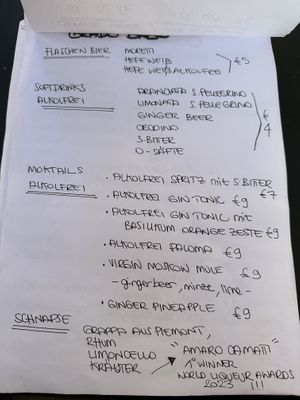 FLASCHEN BIER
MORETTI
HEFE WEIß
HEFE WEIß ALKOLFREI
€5
SOFTDRINKS
ALKOLFREI
ARANCIATA S. PELLEGRINO
LIMONATA S. PELLEGRINO
GINGER BEER
CRODINO
S-BITTER
O-SÄFTE
€
4
MOKTAILS
ALKOLFREI
• ALKOLFREI SPRITZ mit S BITTER €7
• ALKOLFREI GIN TONIC €9
• ALKOLFREI GIN TONIC mit
BASILIKUM ORANGE ZESTE €9
• ALKOLFREI PALOMA €9
• VIRGIN MOSCOW MULE €9
- gingerbeer, minze, lime -
• GINGER PINEAPPLE €9
SCHNAPSE
GRAPPA AUS PIEMONT,
RHUM
LIMONCELLO
KRÄUTER
"AMARO CAMATTI"
1° WINNER
WORLD LIQUEUR AWARDS
2023 !!!